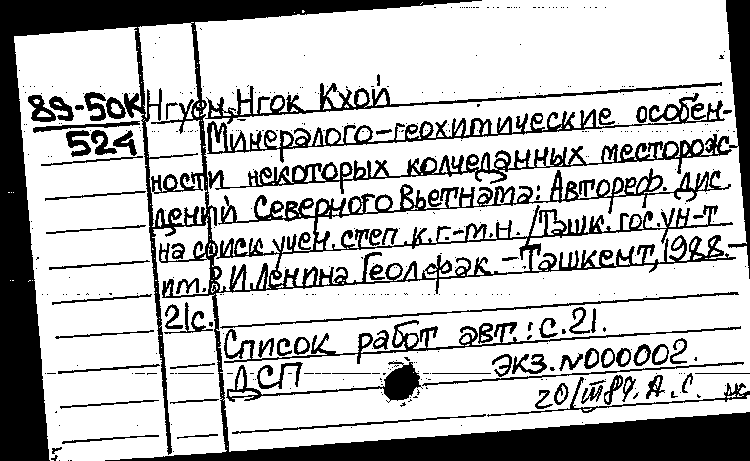 89-50К Нгуен, Нгок Кхой
524 Минералого-геохимические особен-
ности некоторых колчеданных месторож-
дений Северного Вьетнама: Автореф. дис.
на соиск. учен. степ. к.г.-м.н. /Ташк. гос. ун-т
им. В.И. Ленина. Геол. фак. - Ташкент, 1988. -
21с.
Список работ авт.: с. 21.
ДСП экз. N000002.
20/III 89. А.С.